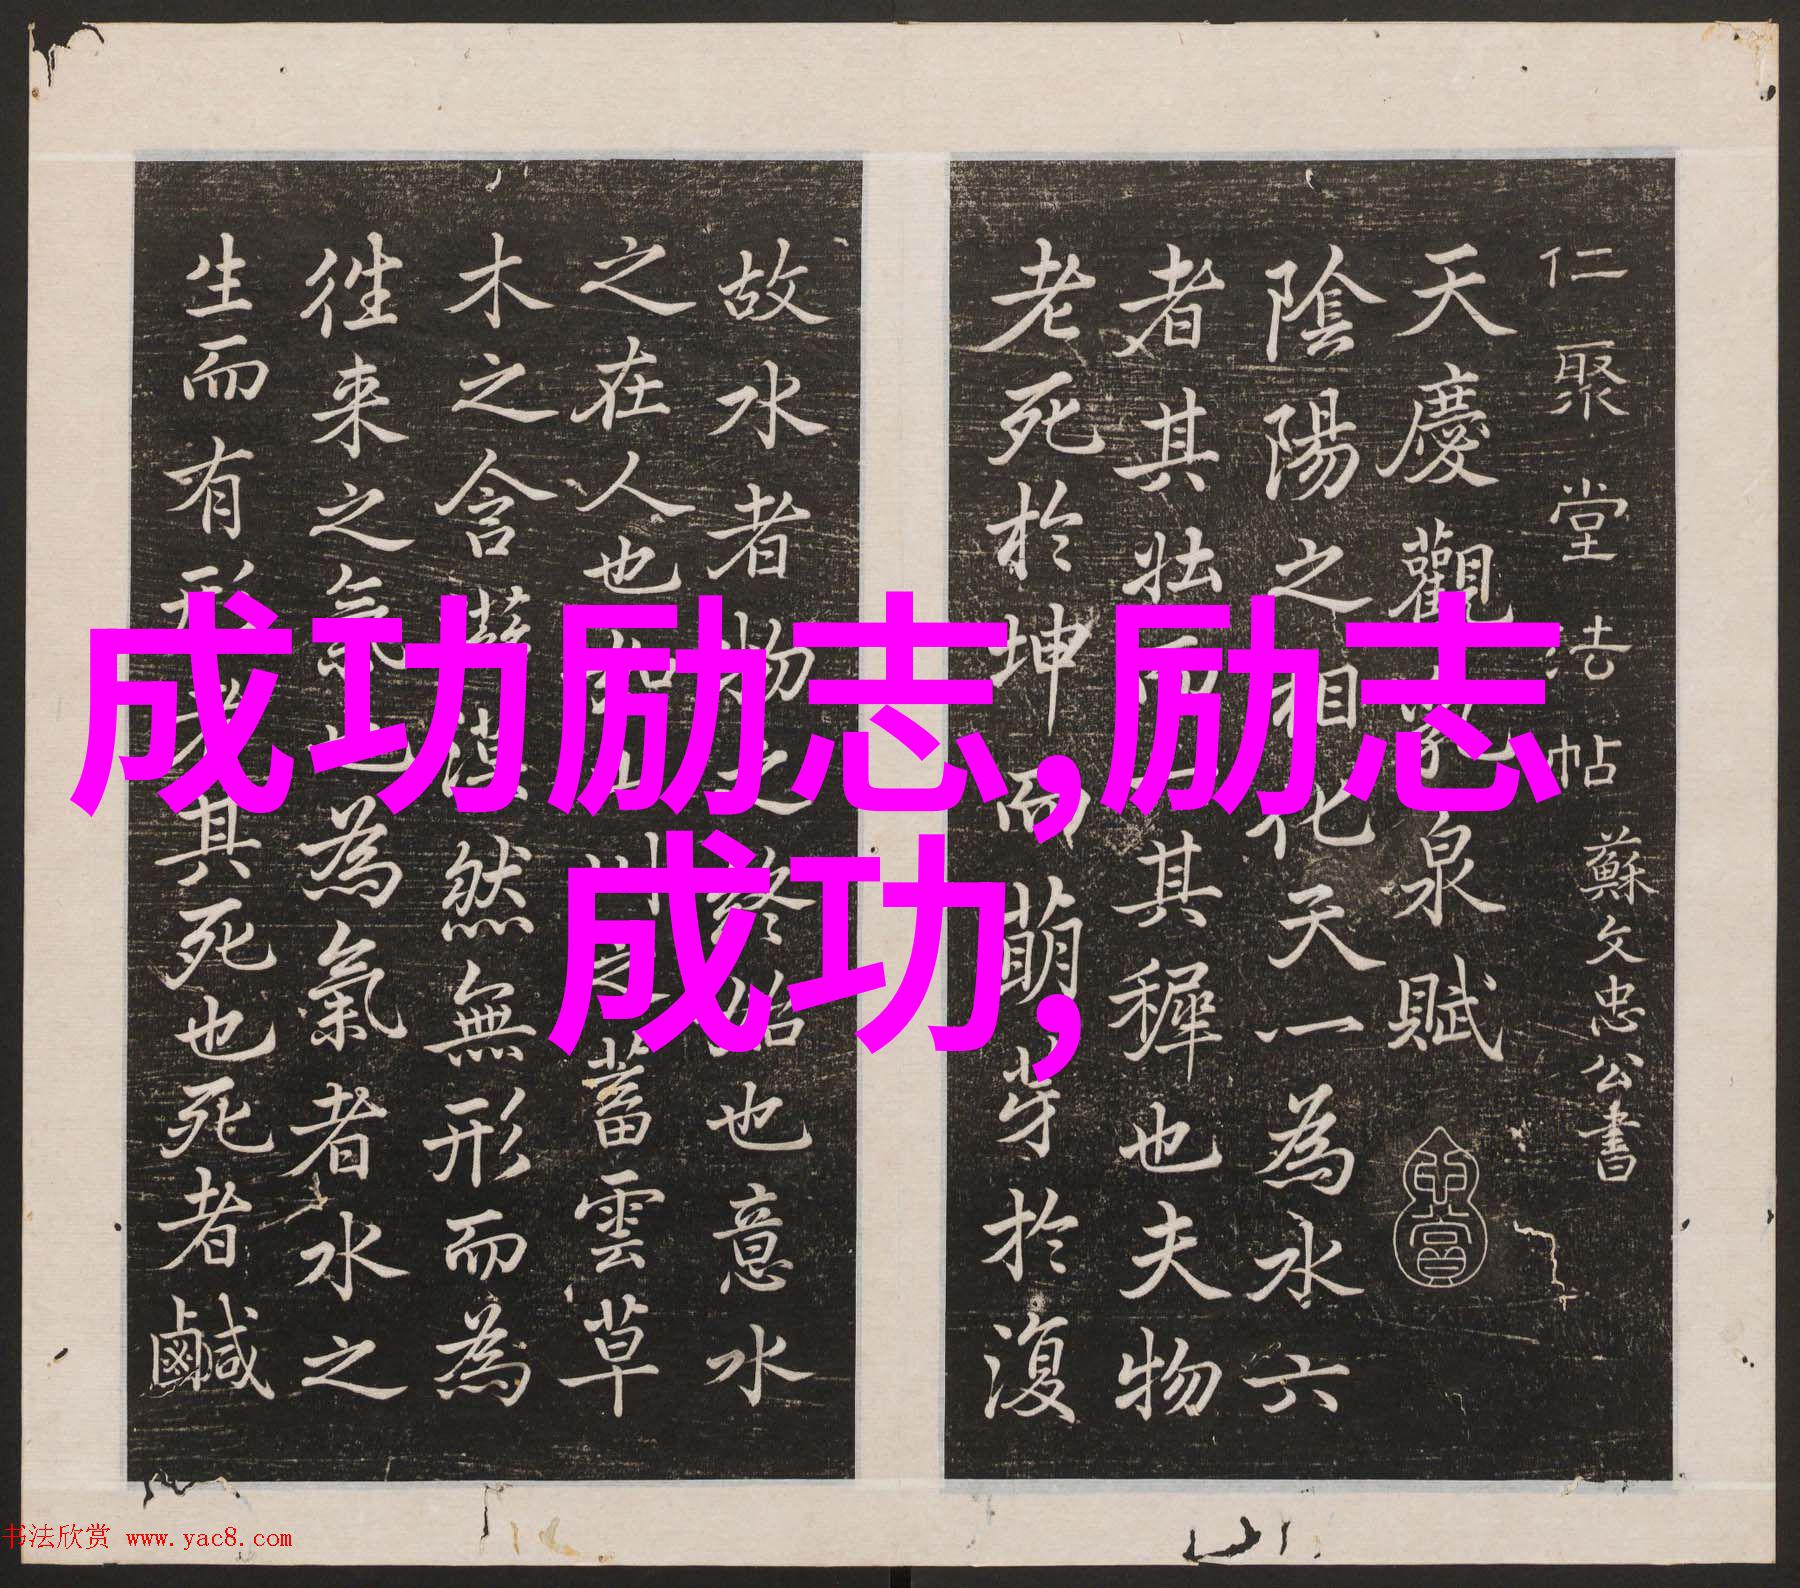 成功励志,励志
成功,
仁聚堂法帖 蘇文忠公書
天慶觀乳泉賦
陰陽之相化天一為水六
者其壯而一其穉也夫物
老死於坤而萌芽於復
故水者物之終始也意水
之在人也如山川之蓄雲草
木之含漠然無形而為
往来之氣也為氣者水之
生而有形者其死也死者鹹
书法欣赏 www.yac8.com